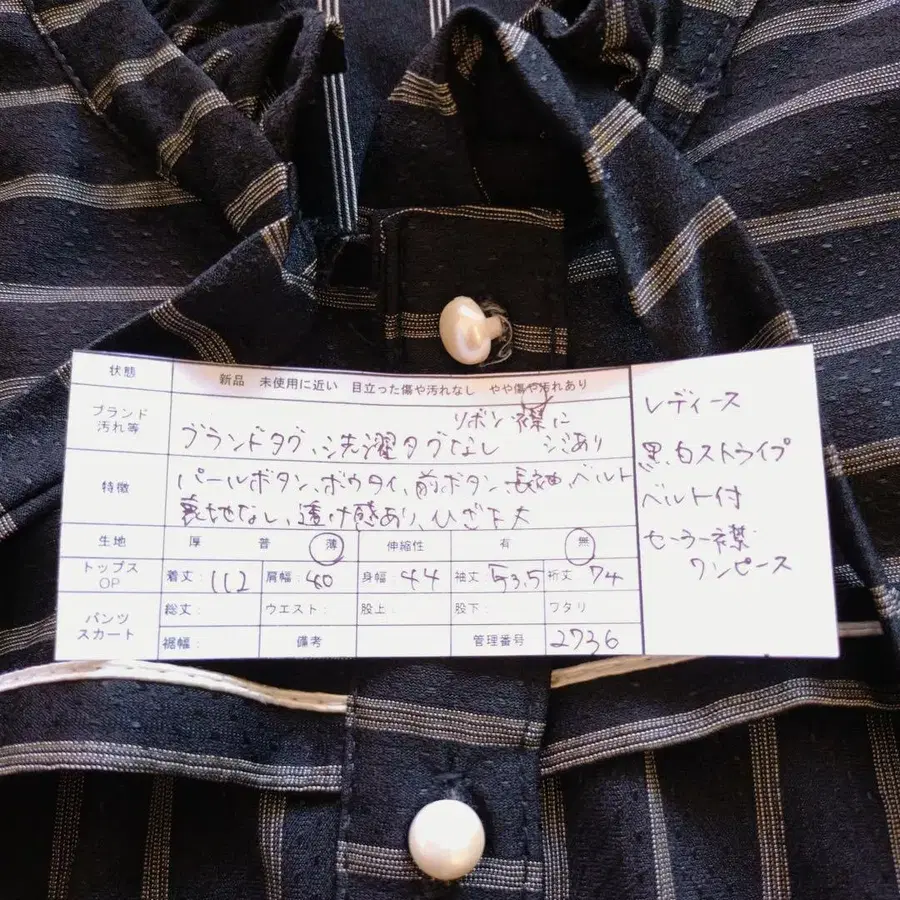 状態 新品 未使用に近い 目立った傷や汚れなし やや傷や汚れあり
ブランド汚れ等 リボン 襟に
ブランドタグ、洗濯タグなし シミあり
特徴 パールボタン、ボウタイ、前ボタン、長袖、ベルト
裏地なし、透け感あり、ひざ下丈
生地 厚 普 薄 伸縮性 有 無
トップス OP 着丈: 112 肩幅: 40 身幅: 44 袖丈: 53.5 裄丈: 74
パンツ スカート 総丈: ウエスト: 股上: 股下: ワタリ
裾幅: 備考 管理番号 2736
レディース
黒、白ストライプ
ベルト付
セーラー襟
ワンピース